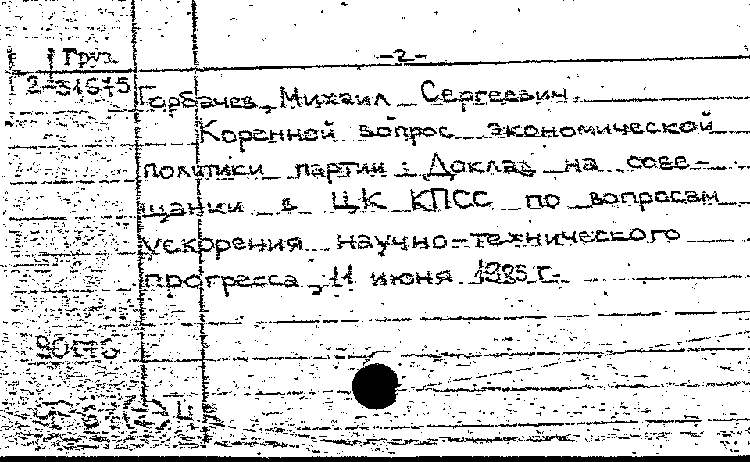 Груз. -2-
2-51675 Горбачев, Михаил Сергеевич.
Коренной вопрос экономической
политики партии : Доклад на сове-
щании в ЦК КПСС по вопросам
ускорения научно-технического
прогресса, 11 июня 1985 г.-